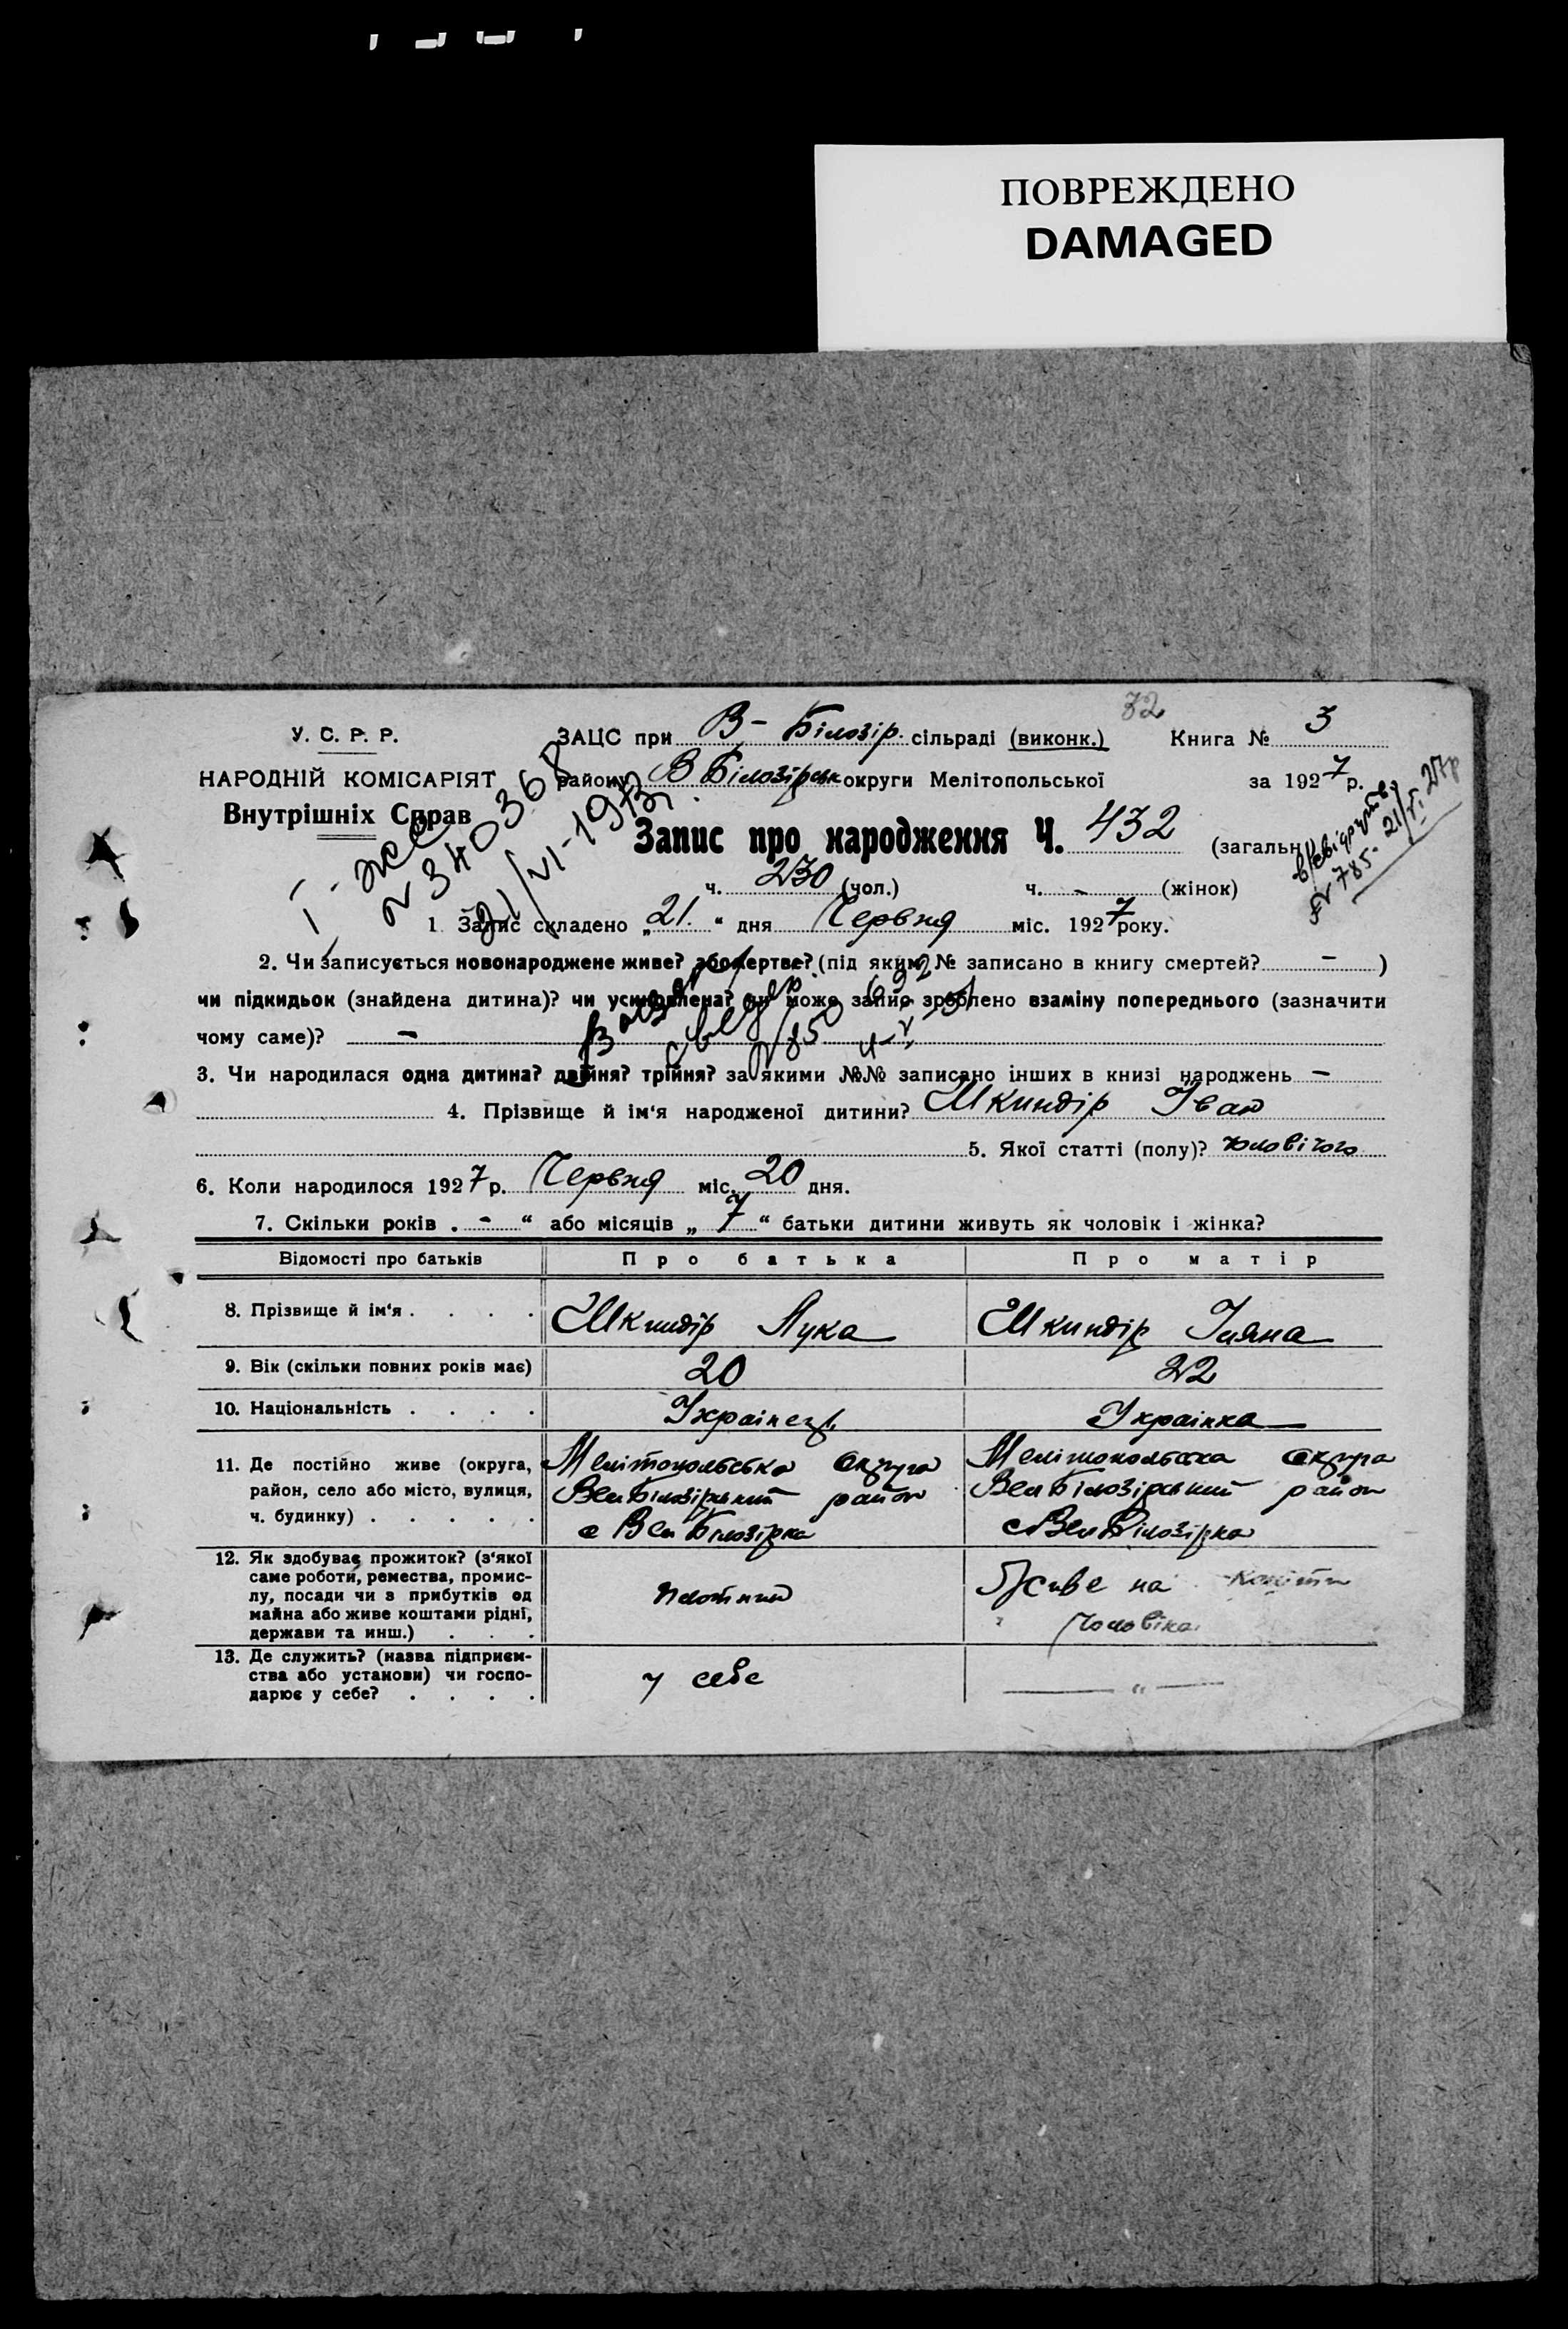 ПОВРЕЖДЕНО
DAMAGED
32
У. С. Р. Р.
ЗАЦС при В- Білозір. сільраді (виконк.) Книга № 3
НАРОДНІЙ КОМІСАРІЯТ району В Білозірськ округи Мелітопольської за 1927 р.
Внутрішніх Справ
Запис про народження Ч. 432 (загальн
ч. 230 (чол.) ч. - (жінок)
№ 340368
21/VI-1973.
№ 785. 21/VI. 27р
1. Запис складено „21.“ дня Червня міс. 1927 року.
2. Чи записується новонароджене живе? або мертве? (під яким № записано в книгу смертей? - )
чи підкидьок (знайдена дитина)? чи усиновлена? чи може запис зроблено взаміну попереднього (зазначити
чому саме)? -
3. Чи народилася одна дитина? двійня? трійня? за якими №№ записано інших в книзі народжень -
4. Прізвище й ім‘я народженої дитини? Шкиндір Іван
5. Якої статті (полу)? чоловічого
6. Коли народилося 1927 р. Червня міс. 20 дня.
7. Скільки років . - “ або місяців „ 7 “ батьки дитини живуть як чоловік і жінка?
Відомості про батьків Про батька Про матір
8. Прізвище й ім‘я . . . . Шкиндір Лука Шкиндір
9. Вік (скільки повних років має) 20 22
10. Національність . . . . Українець Українка
11. Де постійно живе (округа, район, село або місто, вулиця, ч. будинку) . . . . .
Мелітопольська округа
Вел Білозірський район
с Вел Білозірка
Мелітопольська округа
Вел Білозірський район
с Вел Білозірка
12. Як здобуває прожиток? (з‘якої
саме роботи, ремества, промис-
лу, посади чи з прибутків од
майна або живе коштами рідні,
держави та инш.) . . .
плотник
Живе на кошти
чоловіка
13. Де служить? (назва підприєм-
ства або установи) чи госпо-
дарює у себе? . . . .
у себе
— „ —